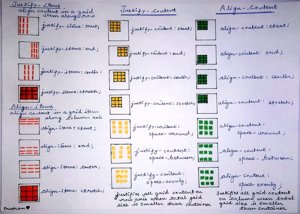 Justify-Items
align content in a grid item
along row
justify-items: start;
justify-items: end;
justify-items: center;
justify-items: stretch;
Align-Items
align content in a grid item
along column axis
align-items: start;
align-items: end;
align-items: center;
align-items: stretch;
Justify-Content
justify-content: start;
justify-content: end;
justify-content: center;
justify-content: stretch;
justify-content:
space-around;
justify-content:
space-between;
justify-content:
space-evenly;
justifies all grid content on
row axis when total grid
size is smaller than container
Align-Content
align-content: start;
align-content: end;
align-content: center;
align-content: stretch;
align-content:
space-around;
align-content:
space-between;
align-content:
space-evenly;
justifies all grid content
on column when total
grid size is smaller
than container